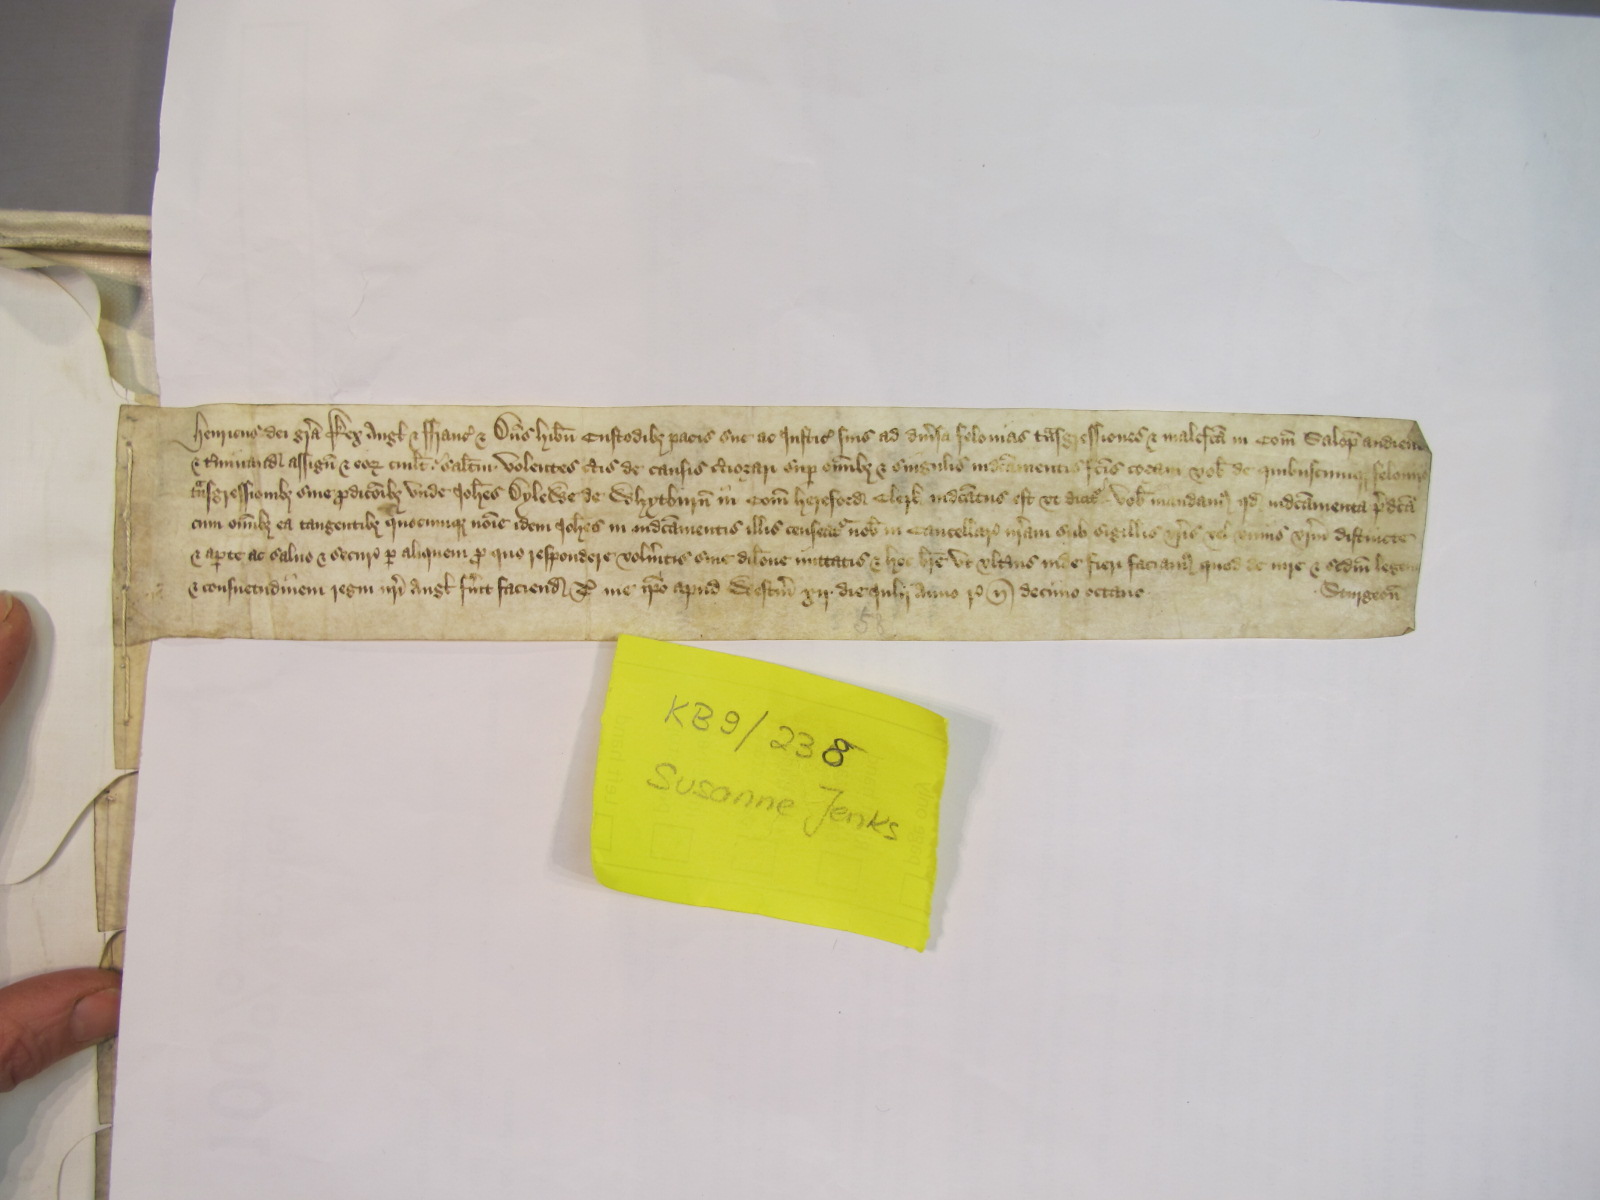 Henricus dei gra Rex Angl & Franc & Dns Hibn Custodibz pacis sue ac Justic suis ad diusa felonias tnsgressiones & malefca in Com Salop audiend
& tminand assign & eor cuilt saltm Volentes ctis de causis ctiorari sup omibz & singulis indictamentis fcis coram vob de quibuscumqz feloniis
tnsgressionibz siue pditoibz vnde Johes Dylewe de Whytburn in Com Hereford Clerk indictatus est vt dicit vob mandam qd indictamenta pdca
cum omibz ea tangentibz quocumqz noie idem Johes in indictamentis illis censeat nob in Cancellar nram sub sigillis vris vel vnius vrm distincte
& apte ac saluo & securo p aliquem p quo respondere volueritis sine dilone mittatis & hoc bre vt vltius inde fieri faciam quod de iure & scdm legem
& consuetudinem regni nri Angl fuit faciend T me ipo apud Westm xij die Julij Anno r n decimo octauo Sturgeon
58
KB9/238
Susanne Jenks